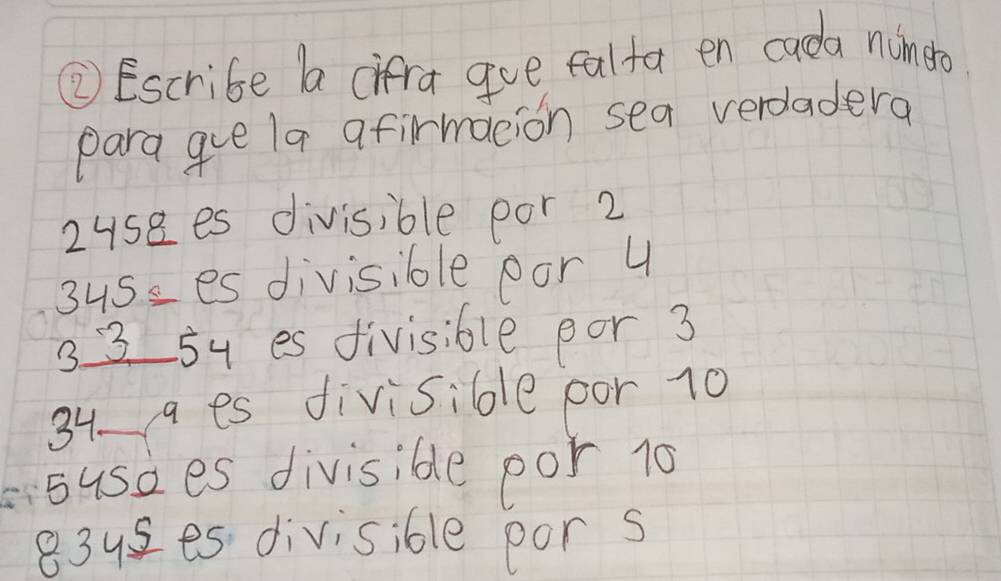 ② Escribe la cifra que falta en cada número
para que la afirmación sea verdadera
2458 es divisible por 2
345_ es divisible por 4
3 3 54 es divisible por 3
34_9 es divisible por 10
5450 es divisible por 10
8345 es divisible por 5